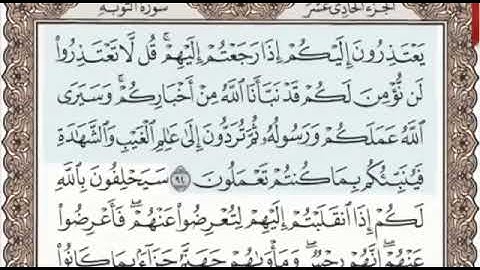 الجزء الحادى عشر
سورة التوبة
يَعْتَذِرُونَ إِلَيْكُمْ إِذَا رَجَعْتُمْ إِلَيْهِمْ ۚ قُل لَّا تَعْتَذِرُوا۟
لَن نُّؤْمِنَ لَكُمْ قَدْ نَبَّأَنَا ٱللَّهُ مِنْ أَخْبَارِكُمْ ۚ وَسَيَرَى
ٱللَّهُ عَمَلَكُمْ وَرَسُولُهُۥ ثُمَّ تُرَدُّونَ إِلَىٰ عَٰلِمِ ٱلْغَيْبِ وَٱلشَّهَٰدَةِ
فَيُنَبِّئُكُم بِمَا كُنتُمْ تَعْمَلُونَ ۝٩٤ سَيَحْلِفُونَ بِٱللَّهِ
لَكُمْ إِذَا ٱنقَلَبْتُمْ إِلَيْهِمْ لِتُعْرِضُوا۟ عَنْهُمْ ۖ فَأَعْرِضُوا۟
عَنْهُمْ ۖ إِنَّهُمْ رِجْسٌ ۖ وَمَأْوَىٰهُمْ جَهَنَّمُ جَزَآءًۢ بِمَا كَانُوا۟